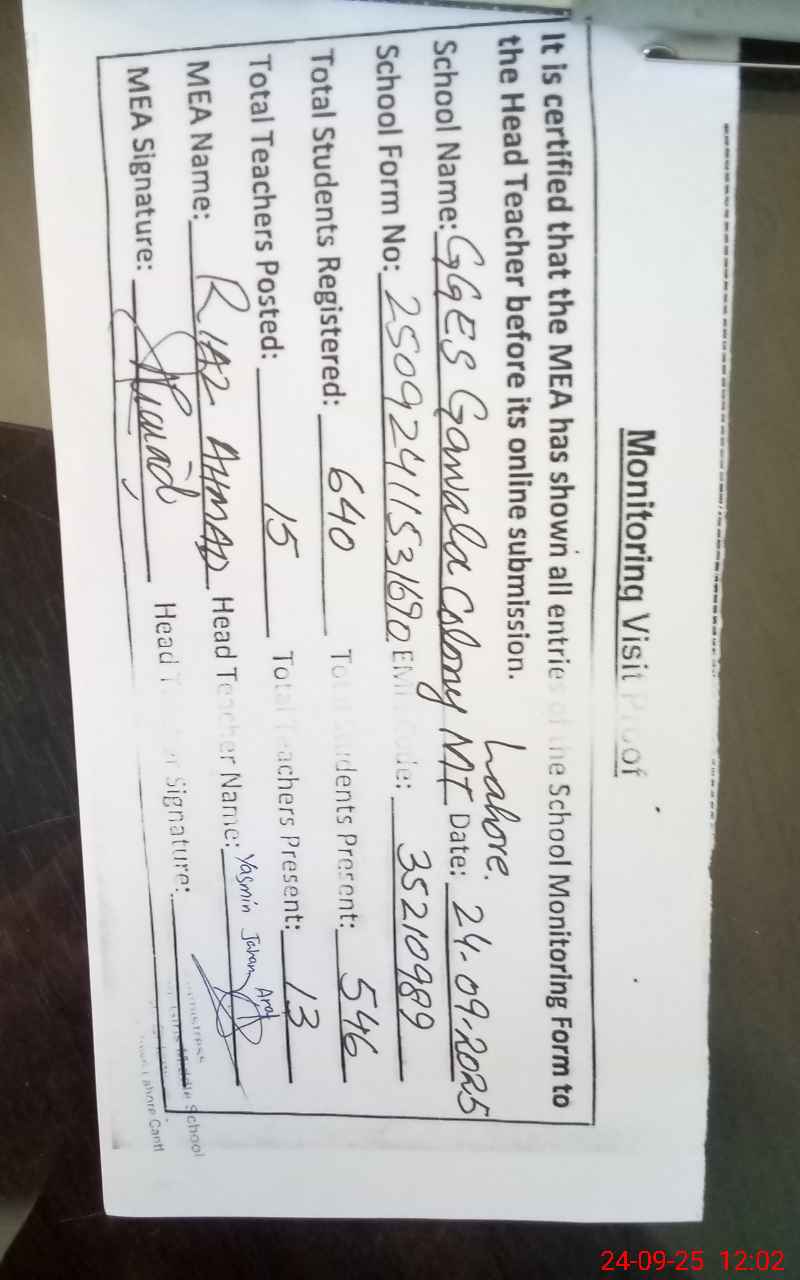 Monitoring Visit Proof
It is certified that the MEA has shown all entries of the School Monitoring Form to
the Head Teacher before its online submission.
Lahore.
School Name: GGES Gawala Colony MT Date: 24-09-2025
School Form No: 25092411531690 EMIS Code: 35210989
Total Students Registered: 640 Total Students Present: 546
Total Teachers Posted: 15 Total Teachers Present: 13
MEA Name: RIAZ AHMAD Head Teacher Name: Yasmin Jahan Ara
MEA Signature: Head Teacher Signature:
School
Lahore Cantt
24-09-25 12:02